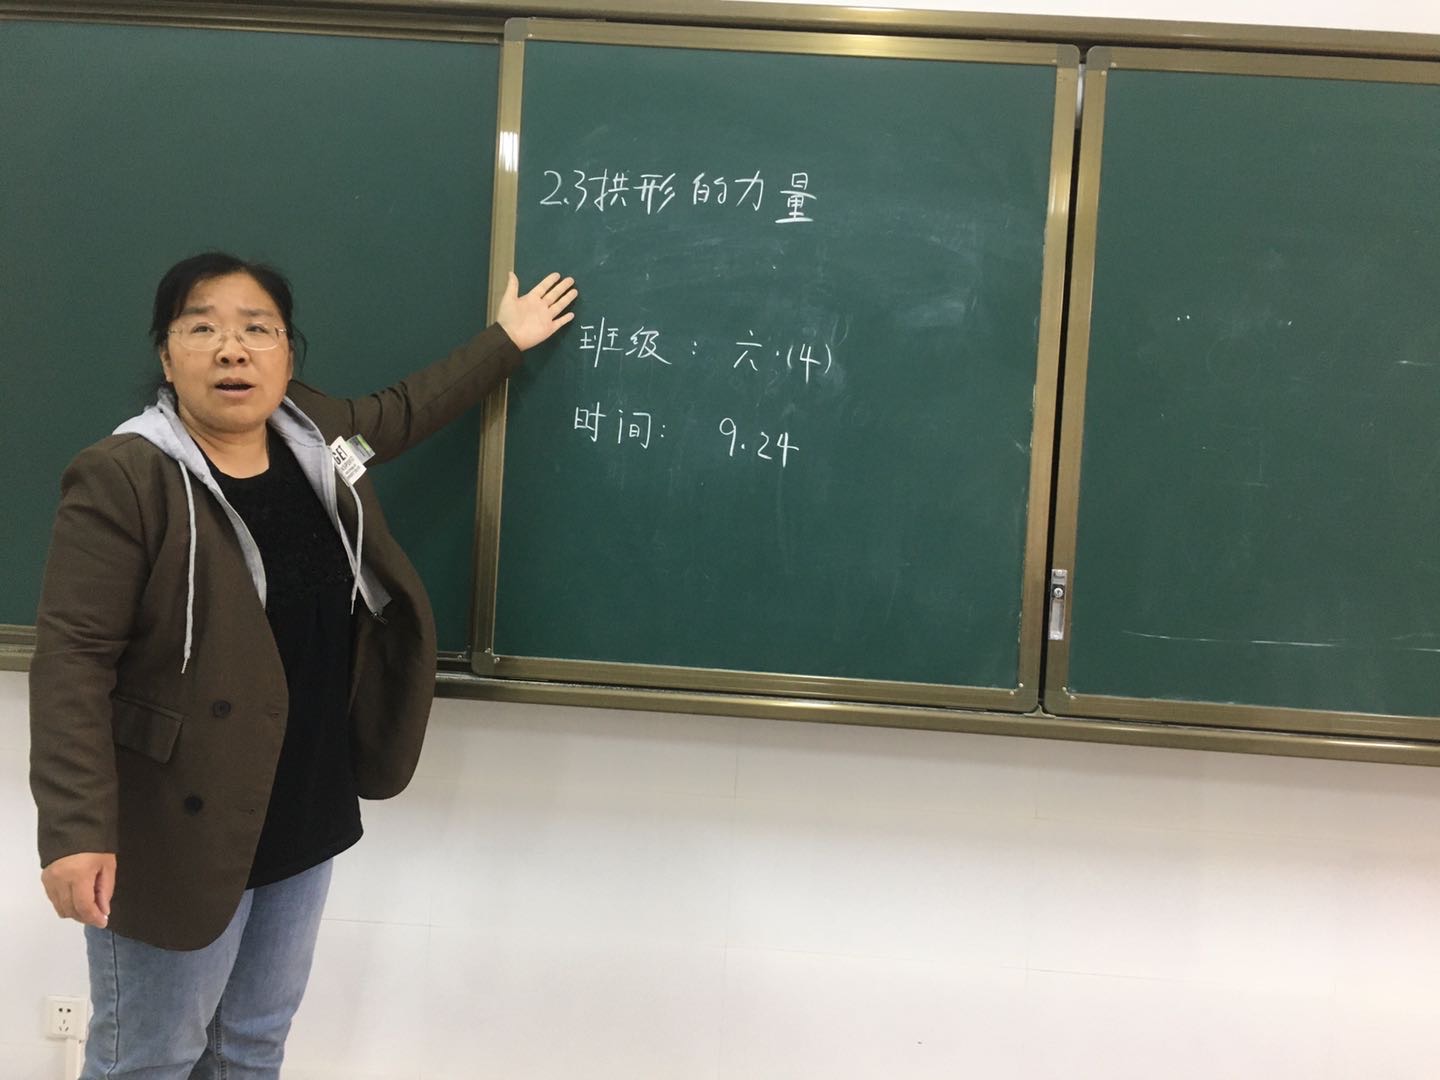 2.3拱形的力量
班级：六.(4)
时间：9.24
GET